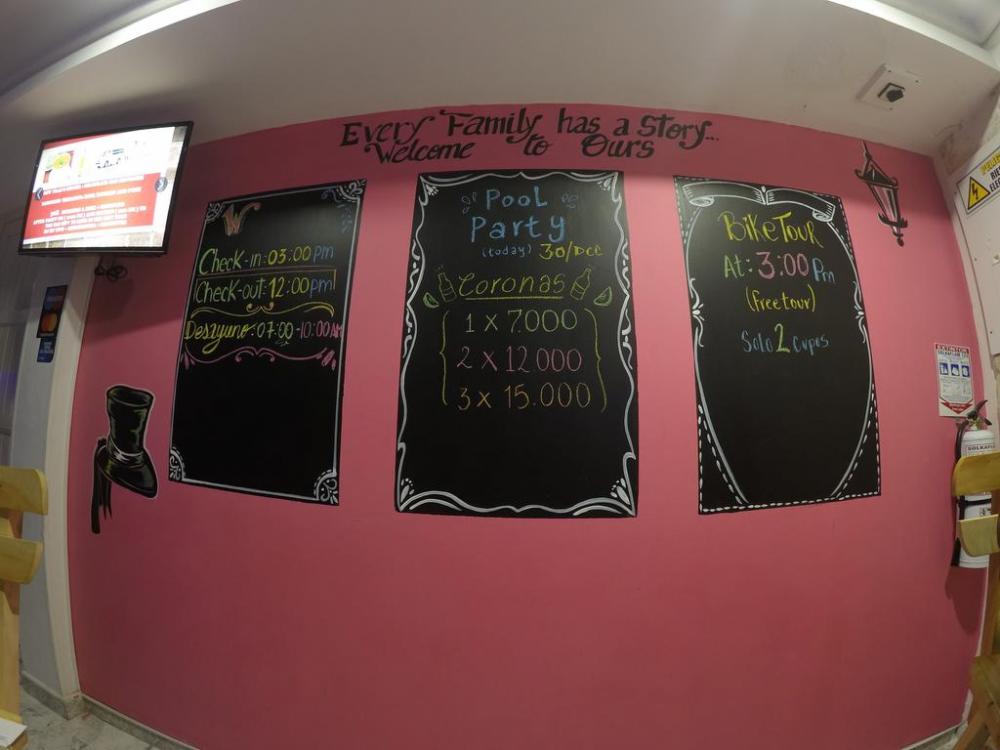 Every Family has a story...
Welcome to Ours
W
Check-in: 03:00 pm
Check-out: 12:00 pm
Desayuno: 07:00 - 10:00 AM
Pool
Party
(today) 30/Dec
Coronas
1 x 7.000
2 x 12.000
3 x 15.000
Bike Tour
At: 3:00 Pm
(free tour)
Solo 2 Cupos
EXTINTOR